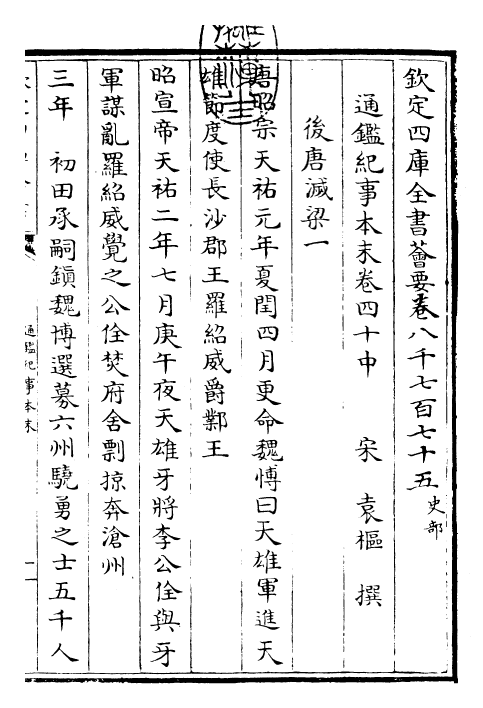 欽定四庫全書薈要卷八千七百七十五 史部
通鑑紀事本末卷四十中 宋 袁樞 撰
後唐滅梁一
唐昭宗天祐元年夏閏四月更命魏博曰天雄軍進天
雄節度使長沙郡王羅紹威爵鄴王
昭宣帝天祐二年七月庚午夜天雄牙將李公佺與牙
軍謀亂羅紹威覺之公佺焚府舍剽掠奔滄州
三年 初田承嗣鎮魏博選募六州驍勇之士五千人
通鑑紀事本末